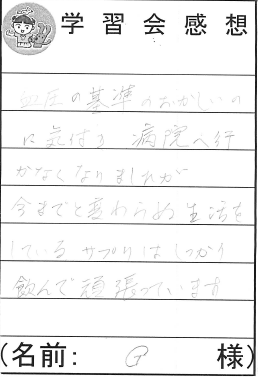 学習会感想
血圧の基準のおかしいの
に気付き 病院へ行
かなくなりましたが
今までと変わらぬ生活を
している サプリはしっかり
飲んで頑張っています
(名前: G 様)